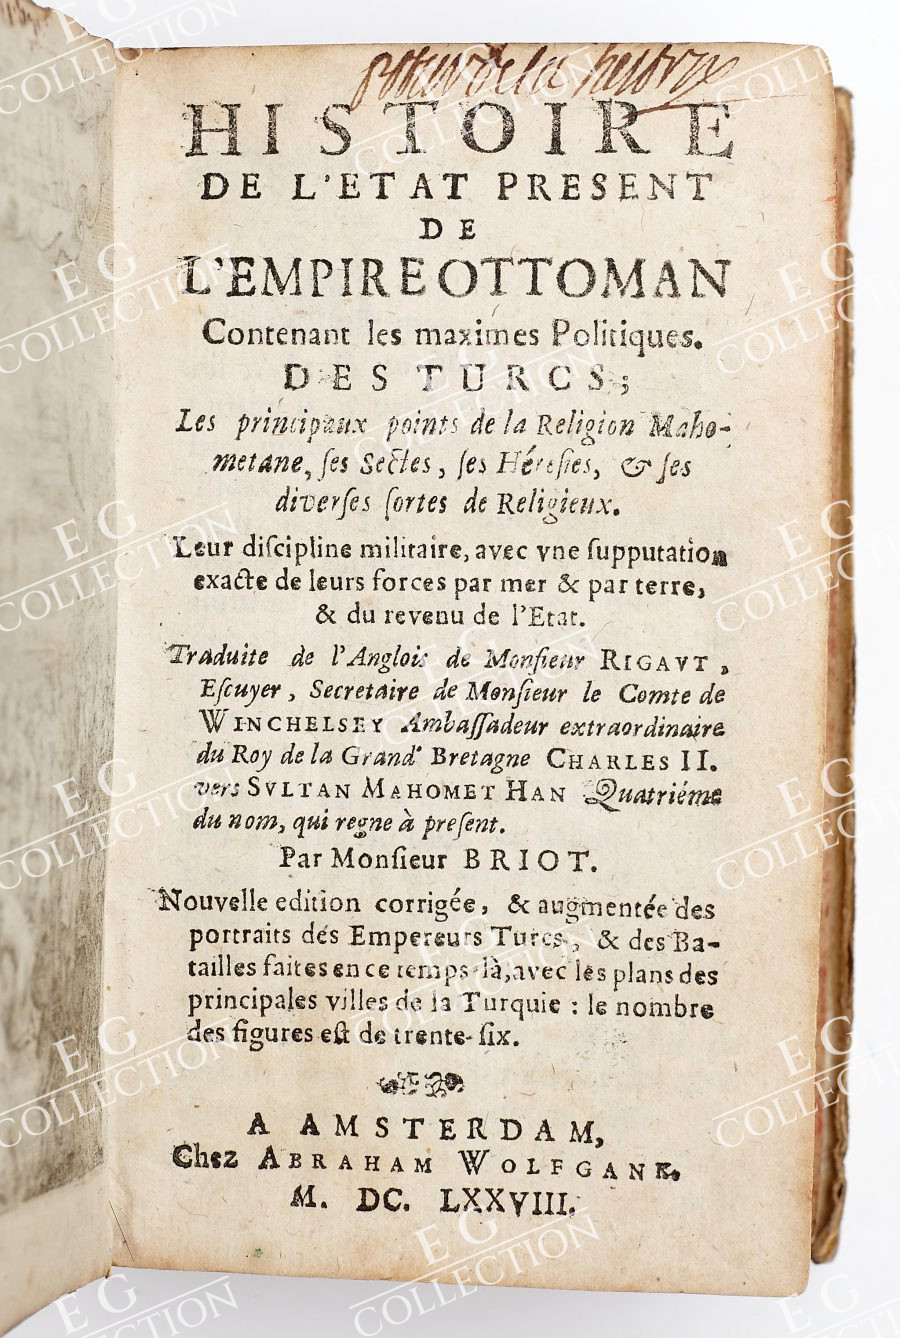 de la
HISTOIRE
DE L'ETAT PRESENT
DE
L'EMPIRE OTTOMAN
Contenant les maximes Politiques.
DES TURCS;
Les principaux points de la Religion Maho-
metane, ſes Sectes, ſes Héreſies, & ſes
diverſes ſortes de Religieux.
Leur diſcipline militaire, avec vne ſupputation
exacte de leurs forces par mer & par terre,
& du revenu de l'Etat.
Traduite de l'Anglois de Monſieur RIGAVT,
Eſcuyer, Secretaire de Monſieur le Comte de
WINCHELSEY Ambaſſadeur extraordinaire
du Roy de la Grand' Bretagne CHARLES II.
vers SVLTAN MAHOMET HAN Quatriéme
du nom, qui regne à preſent.
Par Monſieur BRIOT.
Nouvelle edition corrigée, & augmentée des
portraits des Empereurs Turcs, & des Ba-
tailles faites en ce temps-là, avec les plans des
principales villes de la Turquie : le nombre
des figures eſt de trente-ſix.
A AMSTERDAM,
Chez ABRAHAM WOLFGANK.
M. DC. LXXVIII.
EG
COLLECTION